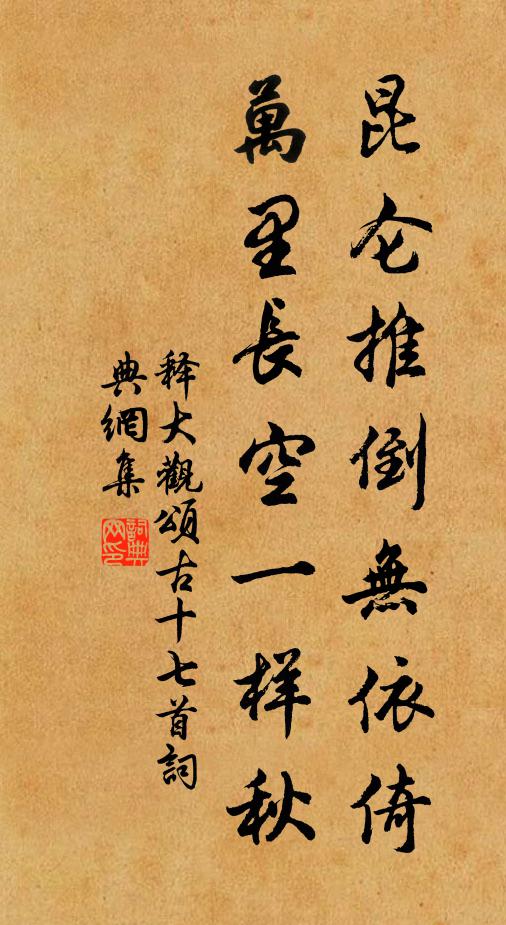 昆仑推倒無依倚
萬里長空一样秋
释大觀頌古十七首詞
典網集
詞典网印